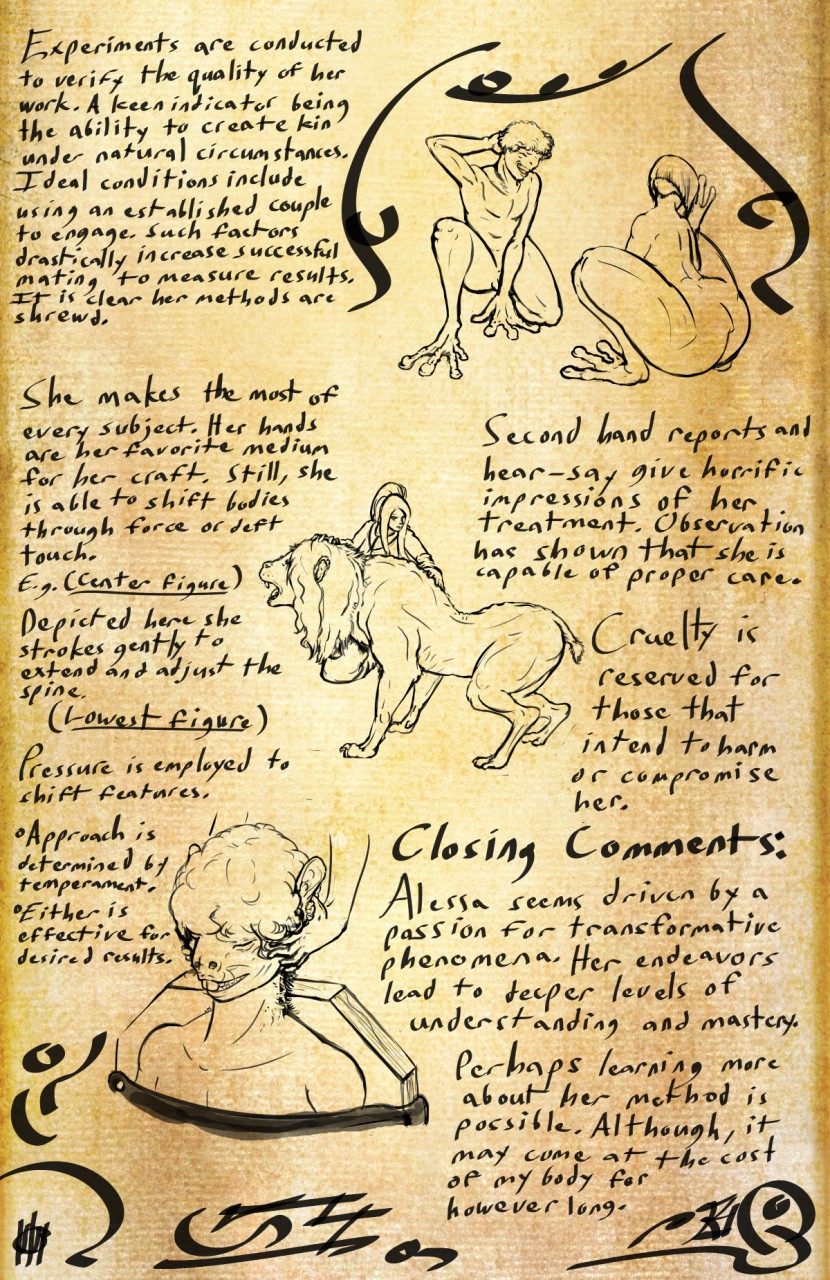 Experiments are conducted
to verify the quality of her
work. A keen indicator being
the ability to create kin
under natural circumstances.
Ideal conditions include
using an established couple
to engage. Such factors
drastically increase successful
mating to measure results.
It is clear her methods are
shrewd.
She makes the most of
every subject. Her hands
are her favorite medium
for her craft. Still, she
is able to shift bodies
through force or deft
touch.
E.g. (Center figure)
Depicted here she
strokes gently to
extend and adjust the
spine.
(Lowest figure)
Pressure is employed to
shift features.
• Approach is
determined by
temperament.
• Either is
effective for
desired results.
Second hand reports and
hear-say give horrific
impressions of her
treatment. Observation
has shown that she is
capable of proper care.
Cruelty is
reserved for
those that
intend to harm
or compromise
her.
Closing Comments:
Alessa seems driven by a
passion for transformative
phenomena. Her endeavors
lead to deeper levels of
understanding and mastery.
Perhaps learning more
about her method is
possible. Although, it
may come at the cost
of my body for
however long.